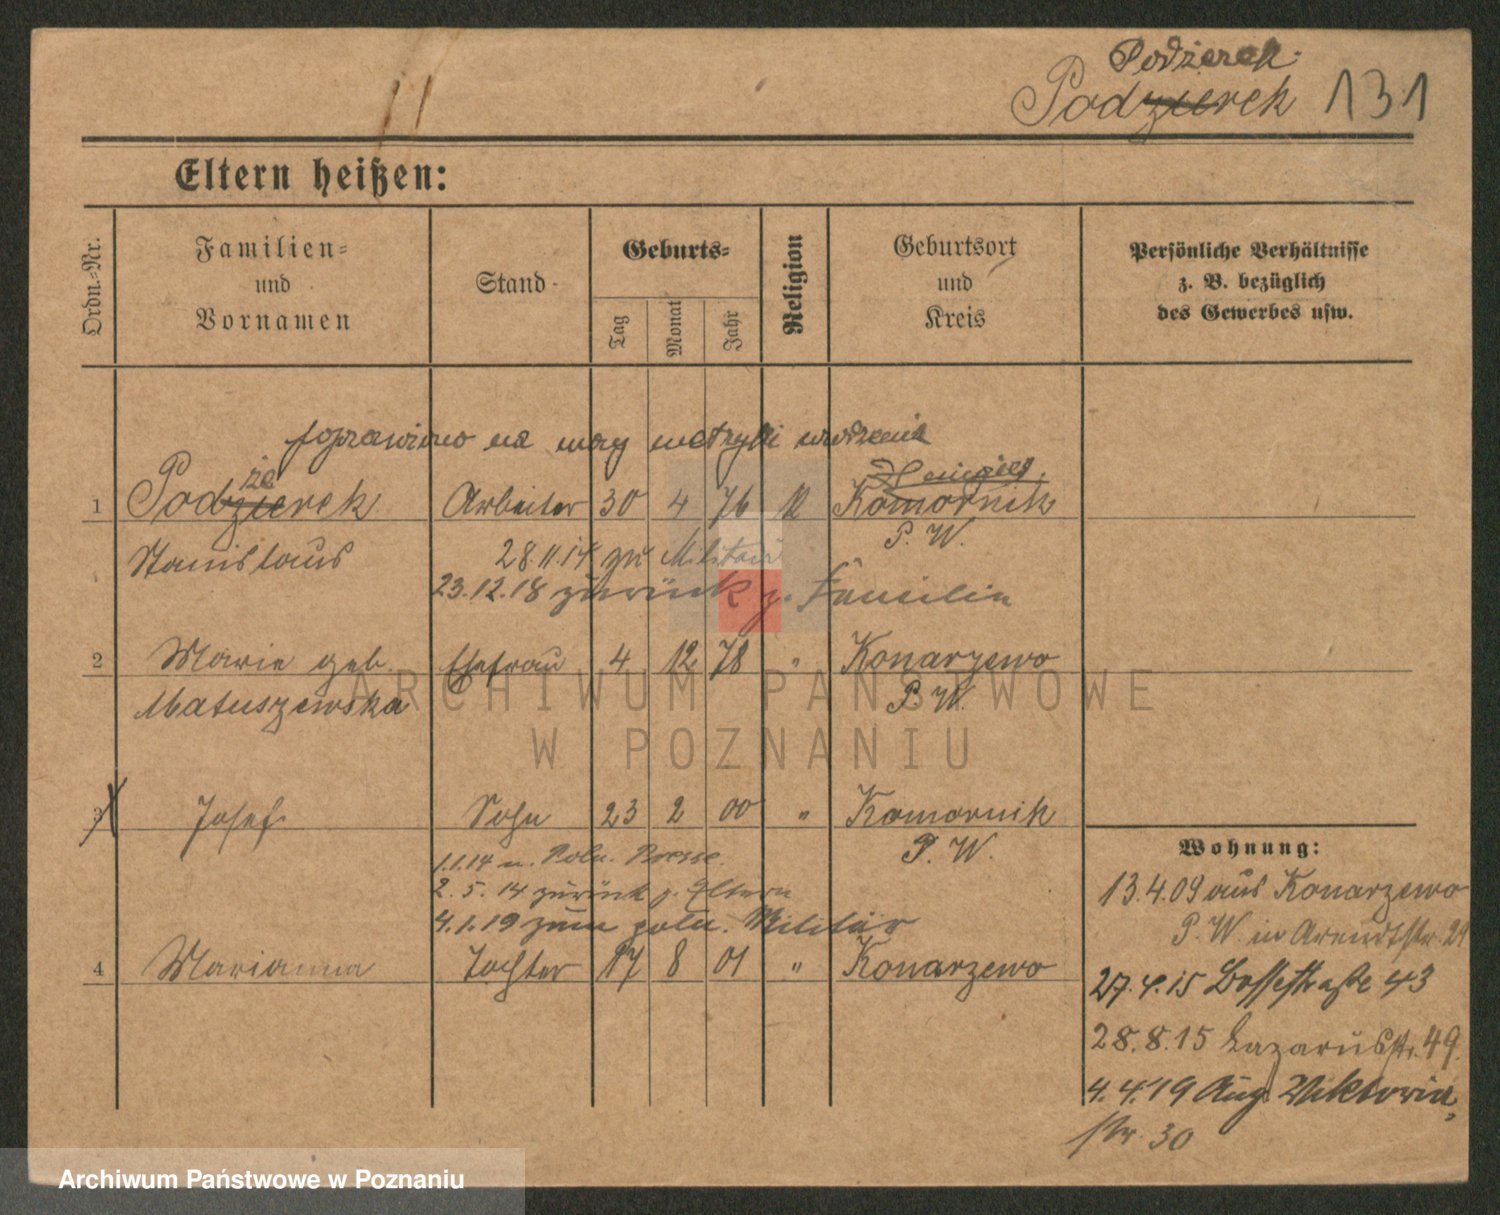 Podżerek
Podzierek 131
Eltern heißen:
Ordn.-Nr.
Familien-
und
Vornamen
Stand
Geburts-
Tag
Monat
Jahr
Religion
Geburtsort
und
Kreis
Persönliche Verhältnisse
z. B. bezüglich
des Gewerbes usw.
poprawiono na mocy metryki urodzenia
że
1 Podzierek Arbeiter 30 4 76 K Komornik
Stanislaus
P. W.
28.11.14 zu Militär
23.12.18 zurück z. Familie
2 Marie geb. Ehefrau 4 12 78 " Konarzewo
Matuszewska P. W.
3 Josef Sohn 23 2 00 " Komornik
P. W.
1.1.14 n.
2.5.14 zurück z. Eltern
4.1.19 zum poln. Militär
4 Marianna Tochter 17 8 01 " Konarzewo
Wohnung:
13.4.09 aus Konarzewo
P. W. in Arendtstr. 29
27.4.15 Bossestraße 43
28.8.15 Lazarusstr. 49.
4.4.19 Aug. Viktoria
str. 30
ARCHIWUM PAŃSTWOWE
W POZNANIU
Archiwum Państwowe w Poznaniu